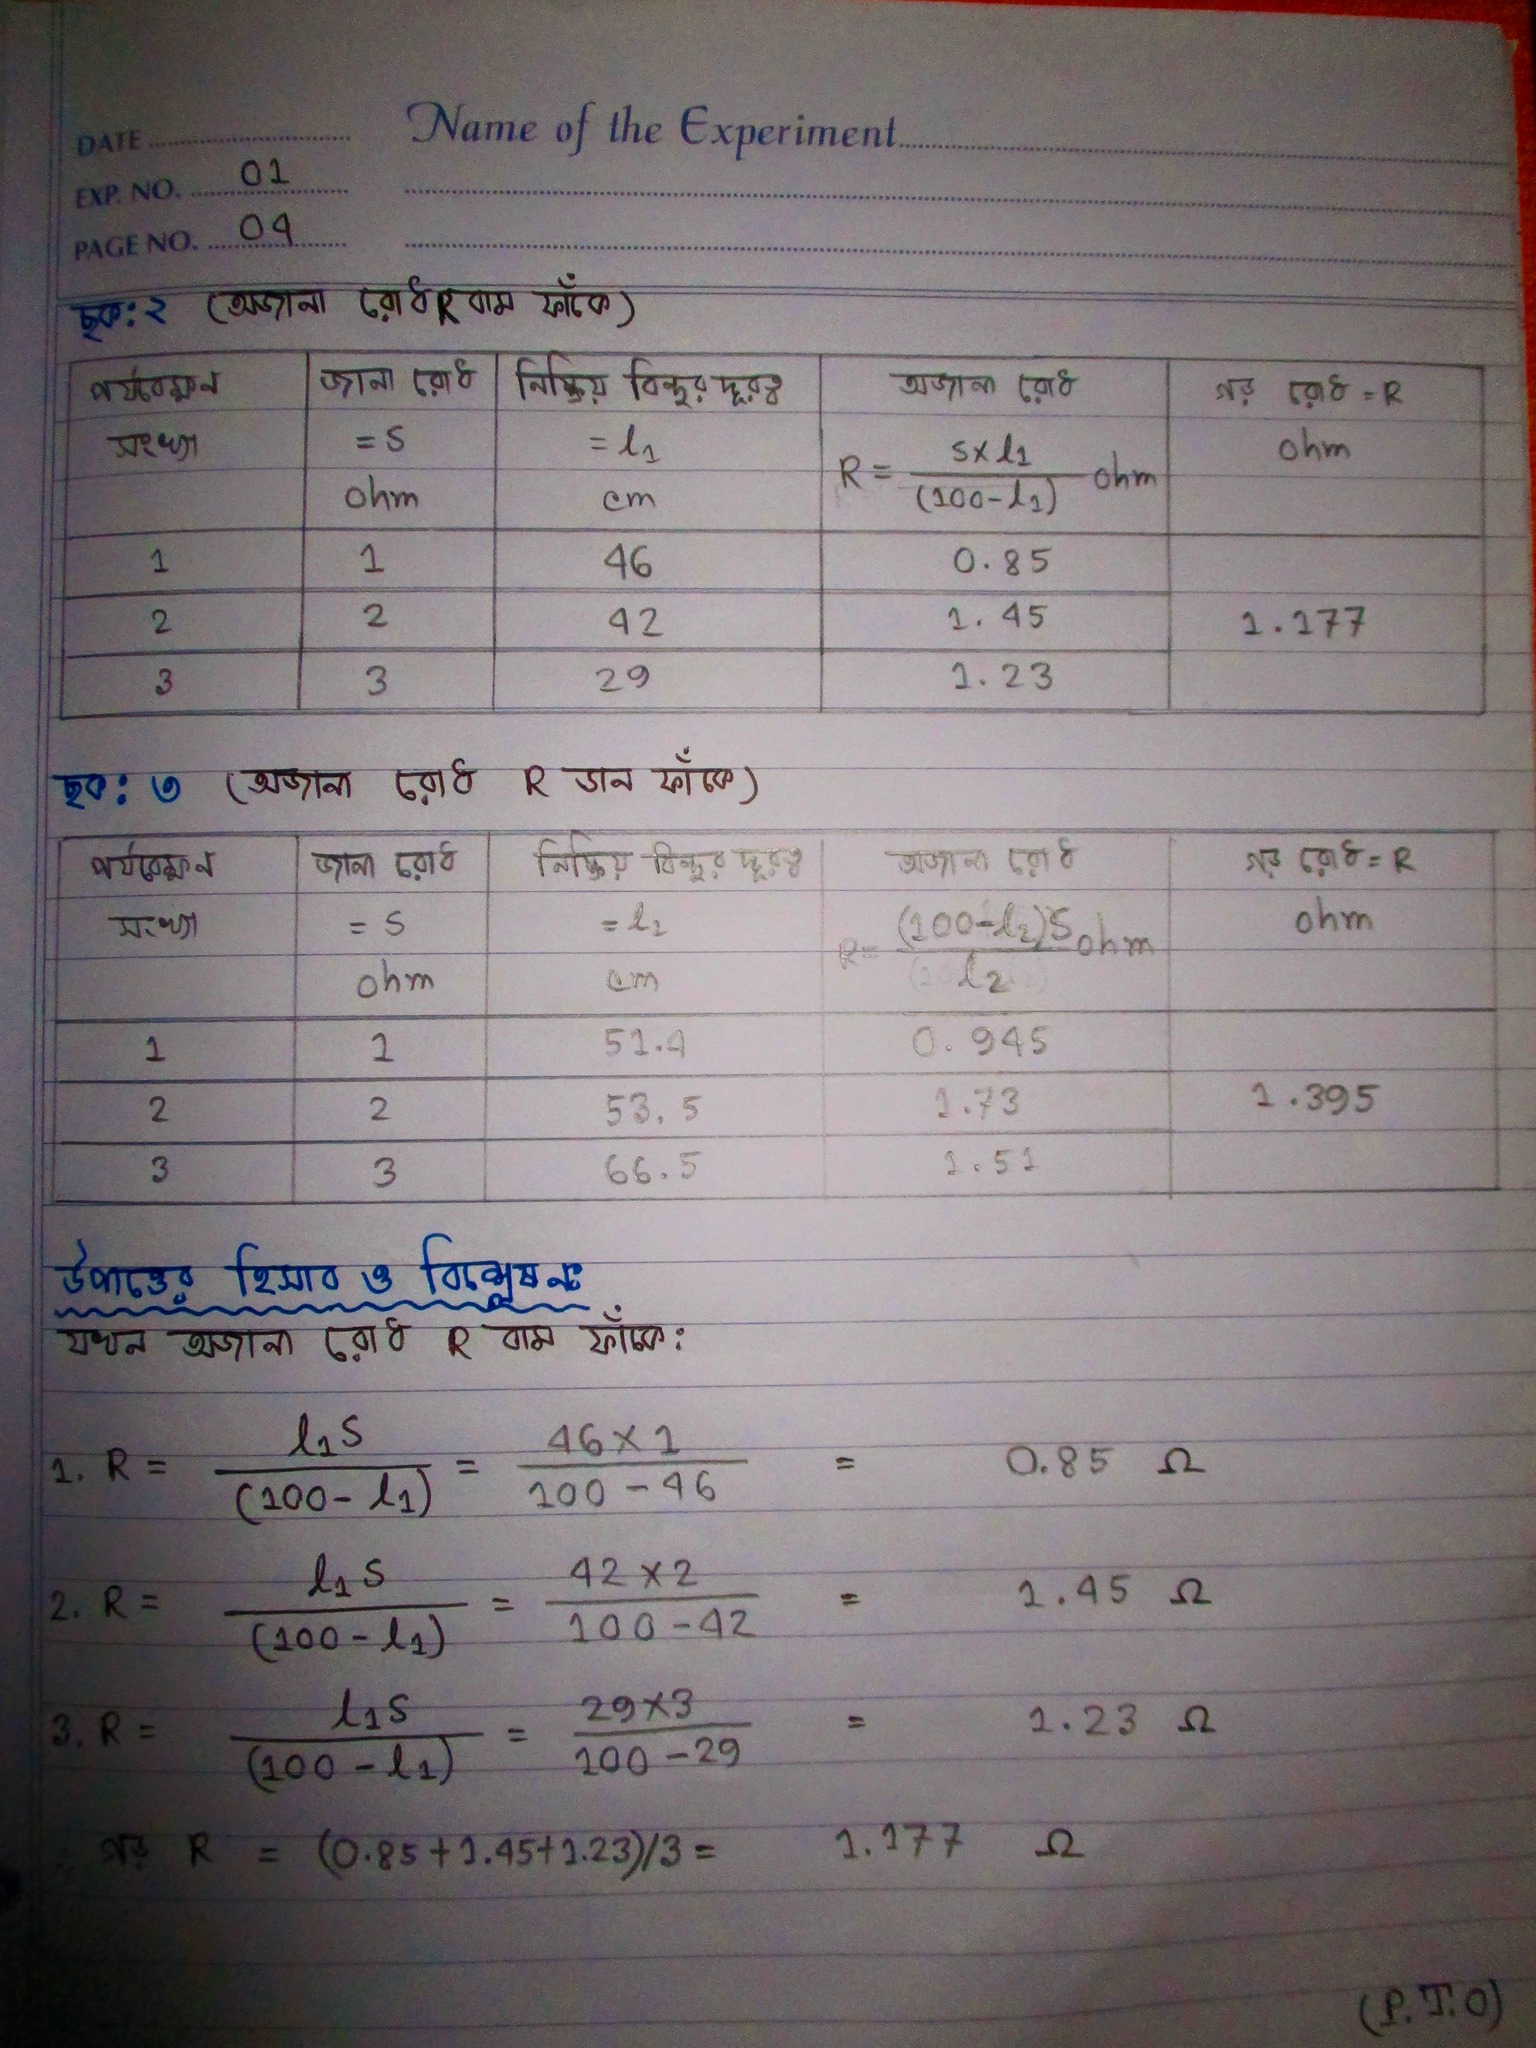 Name of the Experiment
DATE
EXP. NO. 01
PAGE NO. 04
ছক: ২ (অজানা রোধ R বাম ফাঁকে)
পর্যবেক্ষন সংখ্যা | জানা রোধ = S ohm | নিষ্ক্রিয় বিন্দুর দূরত্ব = l₁ cm | অজানা রোধ R = S×l₁/(100-l₁) ohm | গড় রোধ = R ohm
1 | 1 | 46 | 0.85
2 | 2 | 42 | 1.45 | 1.177
3 | 3 | 29 | 1.23
ছক: ৩ (অজানা রোধ R ডান ফাঁকে)
পর্যবেক্ষন সংখ্যা | জানা রোধ = S ohm | নিষ্ক্রিয় বিন্দুর দূরত্ব = l₂ cm | অজানা রোধ R = (100-l₂)S/l₂ ohm | গড় রোধ = R ohm
1 | 1 | 51.4 | 0.945
2 | 2 | 53.5 | 1.73 | 1.395
3 | 3 | 66.5 | 1.51
উপাত্তের হিসাব ও বিশ্লেষনঃ
যখন অজানা রোধ R বাম ফাঁকে:
1. R = l₁S/(100-l₁) = 46×1/100-46 = 0.85 Ω
2. R = l₁S/(100-l₁) = 42×2/100-42 = 1.45 Ω
3. R = l₁S/(100-l₁) = 29×3/100-29 = 1.23 Ω
গড় R = (0.85+1.45+1.23)/3 = 1.177 Ω
(P.T.O)